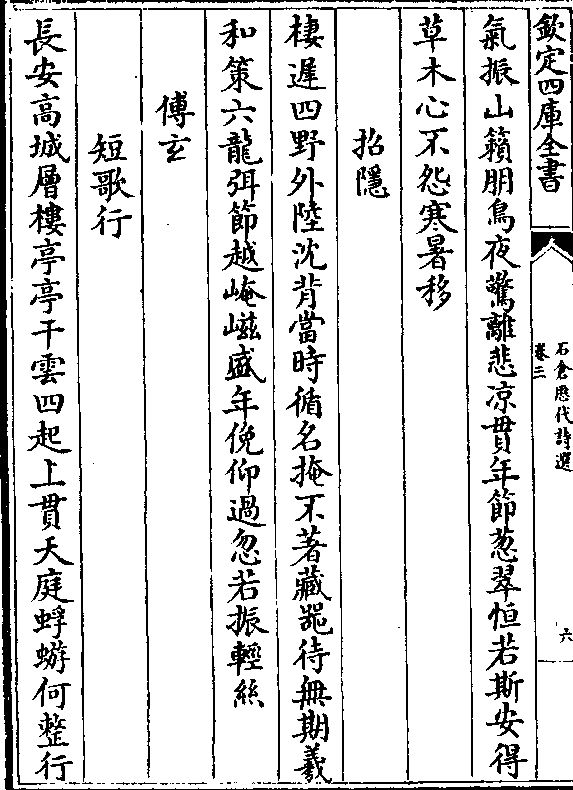 欽定四庫全書
石倉歴代詩選
卷三
六
氣振山籟朋鳥夜驚離悲凉貫年節葱翠恒若斯安得
草木心不怨寒暑移
招隱
棲遲四野外陸沈背當時循名掩不著藏器待無期羲
和策六龍弭節越崦嵫盛年俛仰過忽若振輕絲
傅玄
短歌行
長安高城層樓亭亭干雲四起上貫天庭蜉蝣何整行